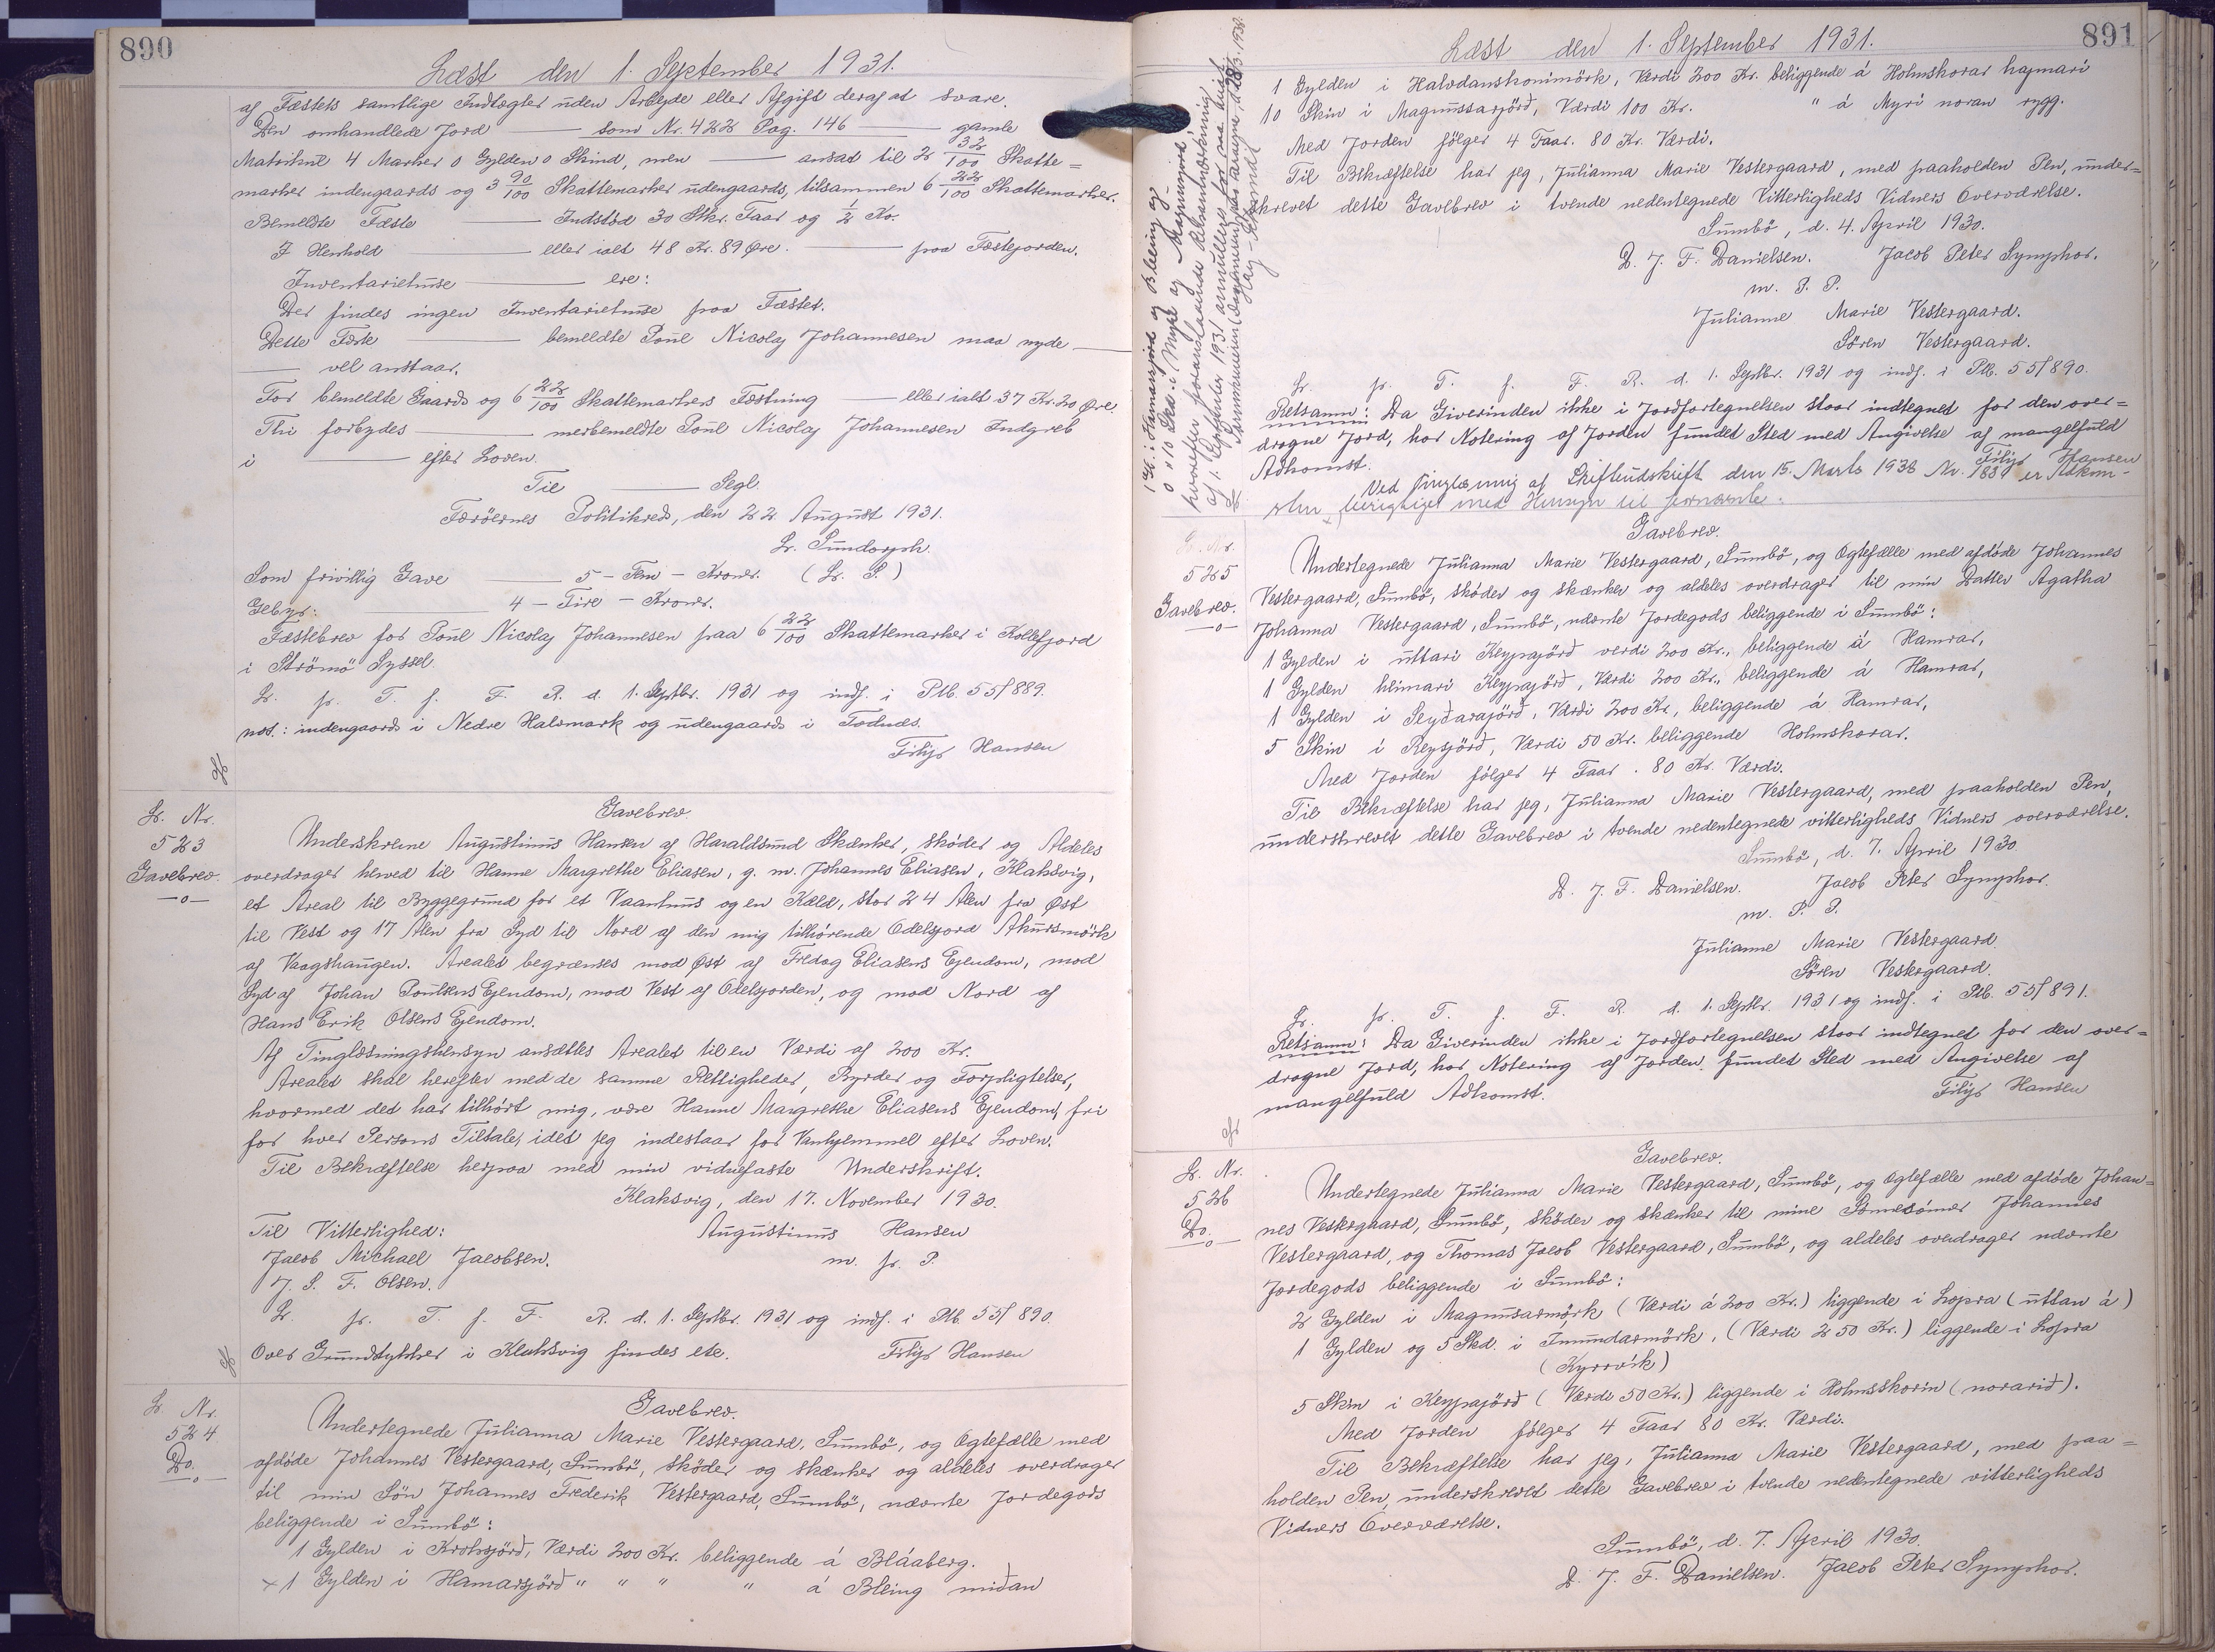 890
Læst den 1. September 1931.
af Fæstets samtlige Indtægter uden Arbejde eller Afgift deraf at svare.
Den omhandlede Jord — som Nr. 422 Pag. 146 — gamle
Matrikul 4 Marker 0 Gylden 0 Skind, men — ansat til 2 32/100 Skatte=
marker indengaards og 3 90/100 Skattemarker udengaards, tilsammen 6 22/100 Skattemarker.
Bemeldte Fæste — Indstød 30 Stkr. Faar og 1/2 Ko.
I Henhold — eller ialt 48 Kr. 89 Øre. — paa Fæstejorden.
Inventariehuse — ere:
Der findes ingen Inventariehuse paa Fæstet.
Dette Fæste — bemeldte Poul Nicolaj Johannesen maa nyde —
— vel anstaar.
For bemeldte Gaards og 6 22/100 Skattemarkers Fæstning — eller ialt 37 Kr. 20 Øre.
Thi forbydes — merbemeldte Poul Nicolaj Johannesen Indgreb
i — efter Loven.
Til — Segl.
Færöernes Politikreds, den 22. August 1931.
Lr. Sundorph.
Som frivillig Gave — 5 - Fem - Kroner. (L. S.)
Gebyr: — 4 - Fire - Kroner.
Fæstebrev for Poul Nicolaj Johannesen paa 6 22/100 Skattemarker i Kollefjord
i Strömö Syssel.
L. pr. T. f. F. R. d. 1. Septbr. 1931 og indf. i Ptb. 55/889.
not.: indengaards i Nedre Halsmark og udengaards i Todnæs.
Filip Hansen
L. Nr.
523
Gavebrev.
—o—
Gavebrev.
Underskrevne Augustinus Hansen af Haraldsund Skænker, skøder og Aldeles
overdrager herved til Hanne Margrethe Eliasen, g. m. Johannes Eliasen, Klaksvig,
et Areal til Byggegrund for et Vaanhuus og en Kæld, stor 24 Alen fra Øst
til Vest og 17 Alen fra Syd til Nord af den mig tilhørende Odelsjord Akursmörk
af Vaagshaugen. Arealet begrænses mod Øst af Fredag Eliasens Ejendom, mod
Syd af Johan Poulsens Ejendom, mod Vest af Odelsjorden, og mod Nord af
Hans Erik Olsens Ejendom.
Af Tinglæsningshensyn ansættes Arealet til en Værdi af 200 Kr.
Arealet skal herefter med de samme Rettigheder, Byrder og Forpligtelser,
hvormed det har tilhört mig, være Hanne Margrethe Eliasens Ejendom, fri
for hver Persons Tiltale, idet jeg indestaar for Vanhjemmel efter Loven.
Til Bekræftelse herpaa med min vidnefaste Underskrift.
Klaksvig, den 17. November 1930.
Til Vitterlighed: Augustinus Hansen
Jacob Michael Jacobsen. m. p. P.
J. S. F. Olsen.
L. pr. T. f. F. R. d. 1. Septbr. 1931 og indf. i Ptb. 55/890.
Over Grundstykker i Klaksvig findes ete. Filip Hansen
L. Nr.
524
Do.
—o—
Gavebrev.
Undertegnede Julianna Marie Vestergaard, Sumbö, og Ægtefælle med
afdöde Johannes Vestergaard, Sumbö, skøder og skænker og aldeles overdrager
til min Søn Johannes Frederik Vestergaard, Sumbö, nævnte Jordegods
beliggende i Sumbö:
1 Gylden i Krohsjörd, Værdi 200 Kr. beliggende á Bláaberg.
× 1 Gylden i Hamarsjörd " " " " á Bleing miðan
891
Læst den 1. September 1931.
1 Gylden i Halvdanskonimörk, Værdi 200 Kr. beliggende á Holmskorar hajmari
10 Skin i Magnussarjörd, Værdi 100 Kr. " á Myri noran rygg.
Med Jorden følger 4 Faar. 80 Kr. Værdi.
Til Bekræftelse har jeg, Julianna Marie Vestergaard, med paaholden Pen, under=
skrevet dette Gavebrev i tvende nedentegnede Vitterligheds Vidners Overværelse.
Sumbö, d. 4. April 1930.
D. J. F. Danielsen. Jacob Peter Symphor.
m. P. P.
Julianne Marie Vestergaard.
Sören Vestergaard.
L. pr. T. f. F. R. d. 1. Septbr. 1931 og indf. i Ptb. 55/890.
Retsanm: Da Giverinden ikke i Jordfortegnelsen staar indtegnet for den over=
dragne Jord, har Notering af Jorden fundet Sted med Angivelse af mangelfuld
Adkomst. Filip Hansen
Ved Tinglæsning af Skifteudskrift den 15. Marts 1938 Nr. 188 er Adkom-
sten berigtiget med Hensyn til
L. Nr.
525
Gavebrev.
—o—
Gavebrev.
Undertegnede Julianna Marie Vestergaard, Sumbö, og Ægtefælle med afdöde Johannes
Vestergaard, Sumbö, skøder og skænker og aldeles overdrager til min Datter Agatha
Johanna Vestergaard, Sumbö, nævnte Jordegods beliggende i Sumbö:
1 Gylden i uttari Keypajörd verdi 200 Kr., beliggende á Hamrar,
1 Gylden heimari Keypajörd, Værdi 200 Kr., beliggende á Hamrar,
1 Gylden i Seyðarajörd, Værdi 200 Kr, beliggende á Hamrar,
5 Skin i Reysjörd, Værdi 50 Kr. beliggende Holmskorar.
Med Jorden følger 4 Faar. 80 Kr. Værdi.
Til Bekræftelse har jeg, Julianna Marie Vestergaard, med paaholden Pen,
underskrevet dette Gavebrev i tvende nedentegnede vitterligheds Vidners overværelse.
Sumbö, d. 7. April 1930.
D. J. F. Danielsen. Jacob Peter Symphor.
m. P. P.
Julianne Marie Vestergaard.
Sören Vestergaard.
L. pr. T. f. F. R. d. 1. Septbr. 1931 og indf. i Ptb. 55/891.
Retsanm: Da Giverinden ikke i Jordfortegnelsen staar indtegnet for den over=
dragne Jord, har Notering af Jorden fundet Sted med Angivelse af
mangelfuld Adkomst. Filip Hansen
L. Nr.
526
Do.
—o—
Gavebrev.
Undertegnede Julianna Marie Vestergaard, Sumbö, og Ægtefælle med afdöde Johan=
nes Vestergaard, Sumbö, skøder og skænker til mine Sønnesønner Johannes
Vestergaard, og Thomas Jacob Vestergaard, Sumbö, og aldeles overdrager nævnte
Jordegods beliggende i Sumbö:
2 Gylden i Magnusarmörk (Værdi á 200 Kr.) liggende i Lopra (uttan á)
1 Gylden og 5 Skd. i Imundarmörk, (Værdi 250 Kr.) liggende i Lopra
(Kyrrvik)
5 Skin i Keypajörd (Værdi 50 Kr.) liggende i Holmsskorin (norarið).
Med Jorden følger 4 Faar 80 Kr. Værdi.
Til Bekræftelse har jeg, Julianna Marie Vestergaard, med paa=
holden Pen, underskrevet dette Gavebrev i tvende nedentegnede vitterligheds
Vidners Overværelse.
Sumbö, d. 7. April 1930.
D. J. F. Danielsen. Jacob Peter Symphor.